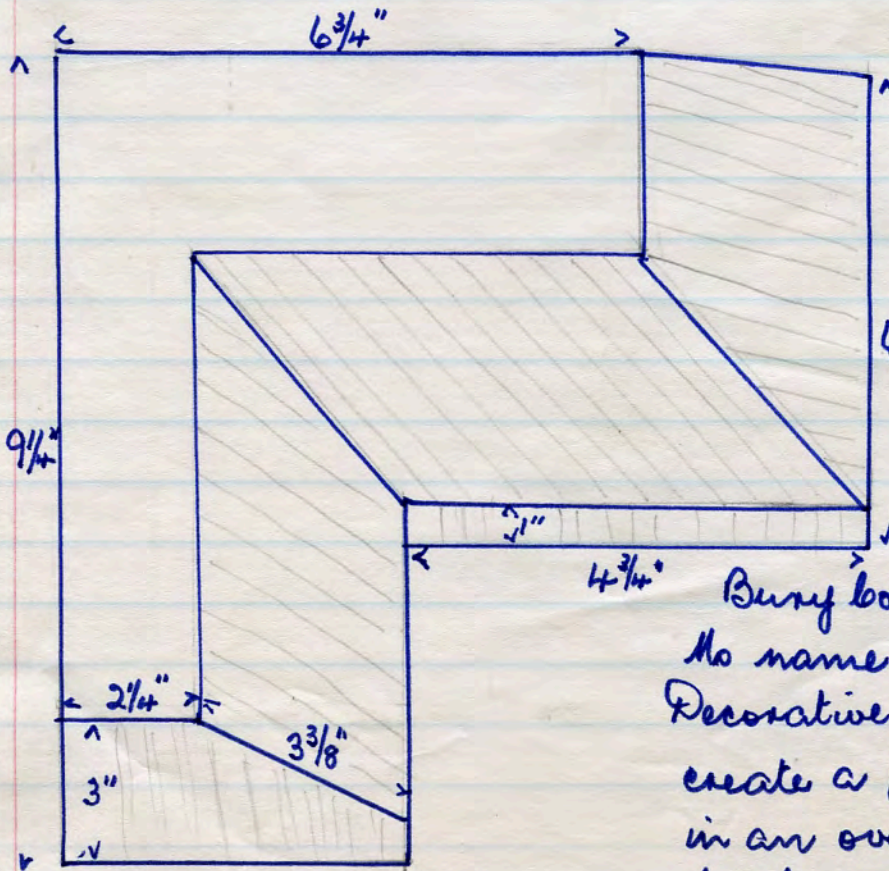 6 3/4"
9 1/4"
1"
4 3/4"
2 1/4"
3 3/8"
3"
No name
Decorative
create a
in an